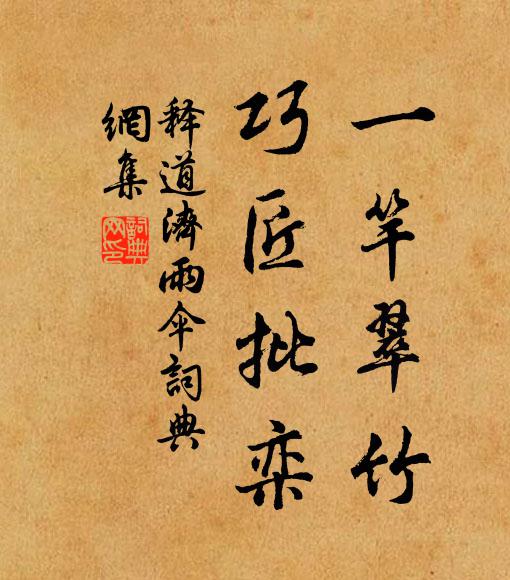 一竿翠竹
巧匠批栾
释道濟雨伞詞典
網集
詞典
网印